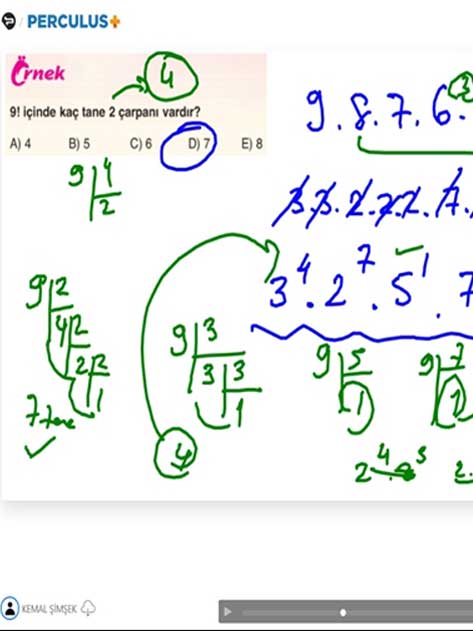 PERCULUS+
Örnek
4
9! içinde kaç tane 2 çarpanı vardır?
A) 4 B) 5 C) 6 D) 7 E) 8
9 . 8 . 7 . 6 .
9 4
2
3⁴ . 2⁷ . 5¹ . 7
9 2
4 2
2 2
1
7 tane
9 3
3 3
1
4
9 5
1
9 7
1
KEMAL ŞİMŞEK